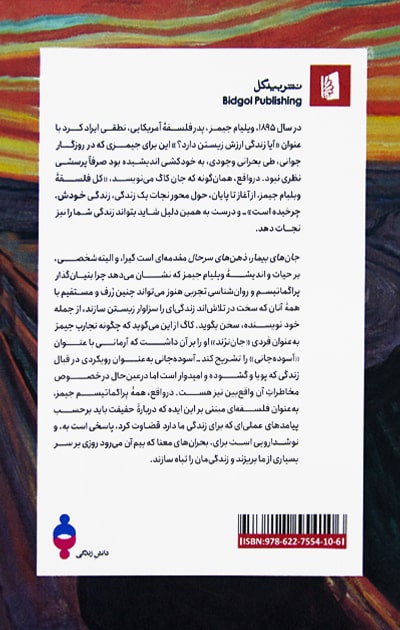 نشر بیدگل
Bidgol Publishing
در سال ۱۸۹۵، ویلیام جیمز، پدر فلسفهٔ آمریکایی، نطقی ایراد کرد با
عنوان «آیا زندگی ارزش زیستن دارد؟» این برای جیمزی که در روزگار
جوانی، طی بحرانی وجودی، به خودکشی اندیشیده بود صرفاً پرسشی
نظری نبود. درواقع، همان‌گونه که جان کاگ می‌نویسد، «کل فلسفهٔ
ویلیام جیمز، از آغاز تا پایان، حول محور نجات یک زندگی، زندگی خودش،
چرخیده است» ـ و درست به همین دلیل شاید بتواند زندگی شما را نیز
نجات دهد.
جان‌های بیمار، ذهن‌های سرحال مقدمه‌ای است گیرا، و البته شخصی،
بر حیات و اندیشهٔ ویلیام جیمز که نشان می‌دهد چرا بنیان‌گذار
پراگماتیسم و روان‌شناسی تجربی هنوز می‌تواند چنین ژرف و مستقیم با
همهٔ آنان که سخت در تلاش‌اند زندگی‌ای را سزاوار زیستن سازند، از جمله
خود نویسنده، سخن بگوید. کاگ از این می‌گوید که چگونه تجارب جیمز
به‌عنوان فردی «جان‌نژند» او را بر آن داشت که آرمانی با عنوان
«آسوده‌جانی» را تشریح کند ـ آسوده‌جانی به‌عنوان رویکردی در قبال
زندگی که پویا و گشوده و امیدوار است اما درعین‌حال در خصوص
مخاطرات آن واقع‌بین نیز هست. درواقع، همهٔ پراگماتیسم جیمز،
به‌عنوان فلسفه‌ای مبتنی بر این ایده که دربارهٔ حقیقت باید برحسب
پیامدهای عملی‌ای که برای زندگی ما دارد قضاوت کرد، پاسخی است به، و
نوشدارویی است برای، بحران‌های معنا که بیم آن می‌رود روزی بر سر
بسیاری از ما بریزند و زندگی‌مان را تباه سازند.
ISBN: 978-622-7554-10-6
دانش زندگی